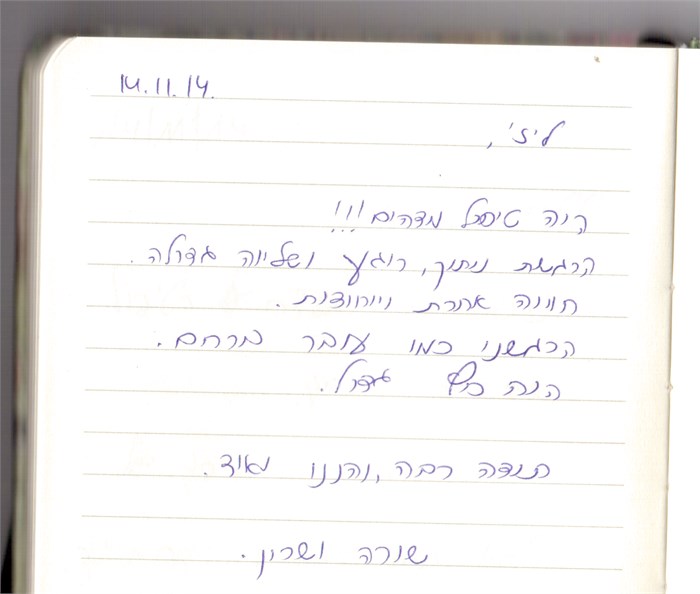 14.11.14.
ליזי,
היה טיפול מדהים!!!
הרגשת ניתוק, רוגע ושלווה גדולה.
חוויה אחרת וייחודית.
הרגשנו כמו עובר ברחם.
היה כיף גדול.
תודה רבה, נהננו מאוד.
שורה ושרון.